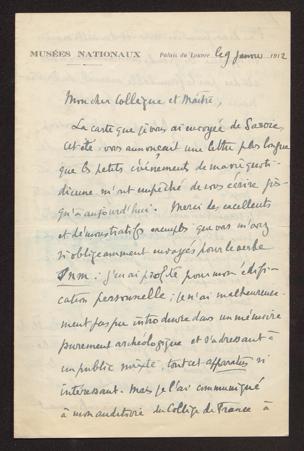 MUSÉES NATIONAUX
Palais du Louvre, le 9 janvier 1912
Mon cher Collègue et Maître,
La carte que je vous ai envoyée de Savoie
cet été vous annonçait une lettre plus longue
que les petits événements de ma vie quoti-
dienne m'ont empêché de vous écrire jus-
qu'à aujourd'hui. Merci des excellents
et démonstratifs exemples que vous m'avez
si obligeamment envoyés pour le verbe
: j'en ai profité pour mon édifi-
cation personnelle ; je n'ai malheureuse-
ment pas pu introduire dans un mémoire
purement archéologique et s'adressant à
un public mixte, tout cet apparatus si
intéressant. Mais je l'ai communiqué
à mon auditoire du Collège de France à